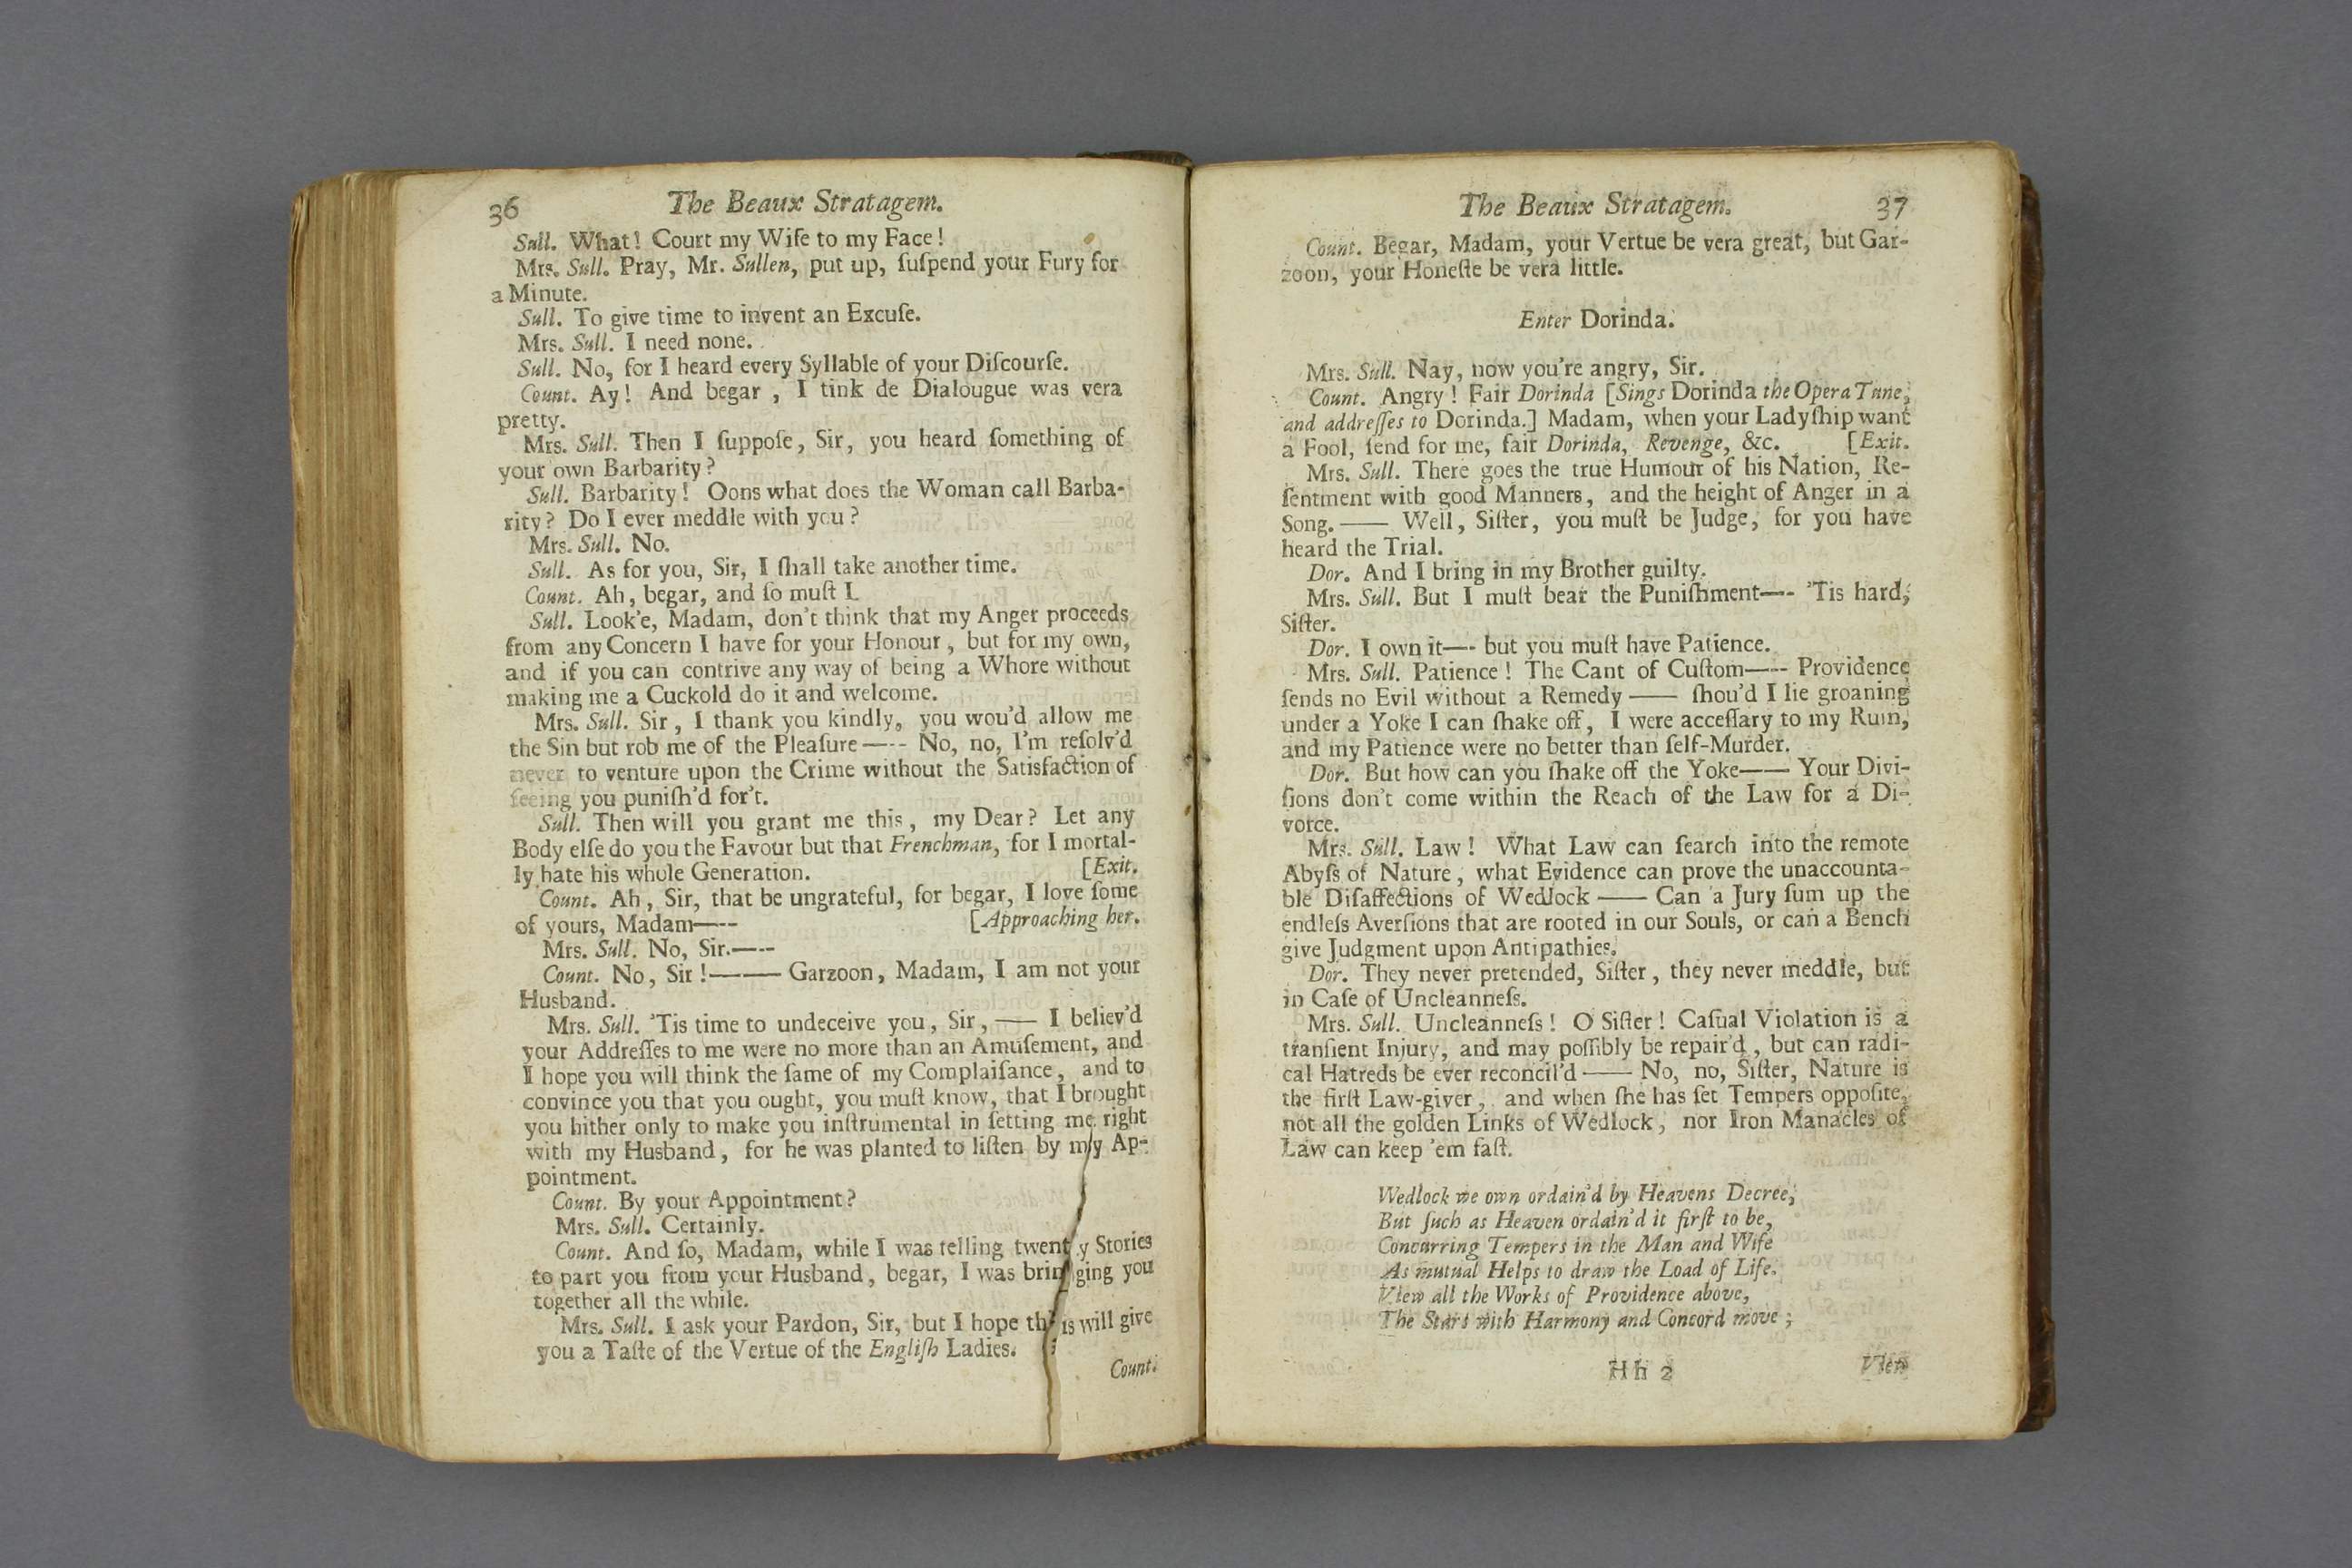 36 The Beaux Stratagem.
Sull. What! Court my Wiſe to my Face!
Mrs. Sull. Pray, Mr. Sullen, put up, ſuſpend your Fury for
a Minute.
Sull. To give time to invent an Excuſe.
Mrs. Sull. I need none.
Sull. No, for I heard every Syllable of your Diſcourſe.
Count. Ay! And begar, I tink de Dialougue was vera
pretty.
Mrs. Sull. Then I ſuppoſe, Sir, you heard ſomething of
your own Barbarity?
Sull. Barbarity! Oons what does the Woman call Barba-
rity? Do I ever meddle with you?
Mrs. Sull. No.
Sull. As for you, Sir, I ſhall take another time.
Count. Ah, begar, and ſo muſt I.
Sull. Look'e, Madam, don't think that my Anger proceeds
from any Concern I have for your Honour, but for my own,
and if you can contrive any way of being a Whore without
making me a Cuckold do it and welcome.
Mrs. Sull. Sir, I thank you kindly, you wou'd allow me
the Sin but rob me of the Pleaſure—-- No, no, I'm reſolv'd
never to venture upon the Crime without the Satisfaction of
ſeeing you puniſh'd for't.
Sull. Then will you grant me this, my Dear? Let any
Body elſe do you the Favour but that Frenchman, for I mortal-
ly hate his whole Generation. [Exit.
Count. Ah, Sir, that be ungrateful, for begar, I love ſome
of yours, Madam—-- [Approaching her.
Mrs. Sull. No, Sir.—--
Count. No, Sir!—— Garzoon, Madam, I am not your
Husband.
Mrs. Sull. 'Tis time to undeceive you, Sir, —— I believ'd
your Addreſſes to me were no more than an Amuſement, and
I hope you will think the ſame of my Complaiſance, and to
convince you that you ought, you muſt know, that I brought
you hither only to make you inſtrumental in ſetting me right
with my Husband, for he was planted to liſten by my Ap-
pointment.
Count. By your Appointment?
Mrs. Sull. Certainly.
Count. And ſo, Madam, while I was telling twenty Stories
to part you from your Husband, begar, I was bringing you
together all the while.
Mrs. Sull. I ask your Pardon, Sir, but I hope this will give
you a Taſte of the Vertue of the Engliſh Ladies.
Count.
The Beaux Stratagem. 37
Count. Begar, Madam, your Vertue be vera great, but Gar-
zoon, your Honeſte be vera little.
Enter Dorinda.
Mrs. Sull. Nay, now you're angry, Sir.
Count. Angry! Fair Dorinda [Sings Dorinda the Opera Tune,
and addreſſes to Dorinda.] Madam, when your Ladyſhip want
a Fool, ſend for me, fair Dorinda, Revenge, &c. [Exit.
Mrs. Sull. There goes the true Humour of his Nation, Re-
ſentment with good Manners, and the height of Anger in a
Song. —— Well, Siſter, you muſt be Judge, for you have
heard the Trial.
Dor. And I bring in my Brother guilty.
Mrs. Sull. But I muſt bear the Puniſhment—-- 'Tis hard,
Siſter.
Dor. I own it—-- but you muſt have Patience.
Mrs. Sull. Patience! The Cant of Cuſtom—-- Providence
ſends no Evil without a Remedy —— ſhou'd I lie groaning
under a Yoke I can ſhake off, I were acceſſary to my Ruin,
and my Patience were no better than ſelf-Murder.
Dor. But how can you ſhake off the Yoke—— Your Divi-
ſions don't come within the Reach of the Law for a Di-
vorce.
Mrs. Sull. Law! What Law can ſearch into the remote
Abyſs of Nature, what Evidence can prove the unaccounta-
ble Diſaffections of Wedlock —— Can a Jury ſum up the
endleſs Averſions that are rooted in our Souls, or can a Bench
give Judgment upon Antipathies.
Dor. They never pretended, Siſter, they never meddle, but
in Caſe of Uncleanneſs.
Mrs. Sull. Uncleanneſs! O Siſter! Caſual Violation is a
tranſient Injury, and may poſſibly be repair'd, but can radi-
cal Hatreds be ever reconcil'd —— No, no, Siſter, Nature is
the firſt Law-giver, and when ſhe has ſet Tempers oppoſite,
not all the golden Links of Wedlock, nor Iron Manacles of
Law can keep 'em faſt.
Wedlock we own ordain'd by Heavens Decree,
But ſuch as Heaven ordain'd it firſt to be,
Concurring Tempers in the Man and Wife
As mutual Helps to draw the Load of Life.
View all the Works of Providence above,
The Stars with Harmony and Concord move;
Hh 2 View